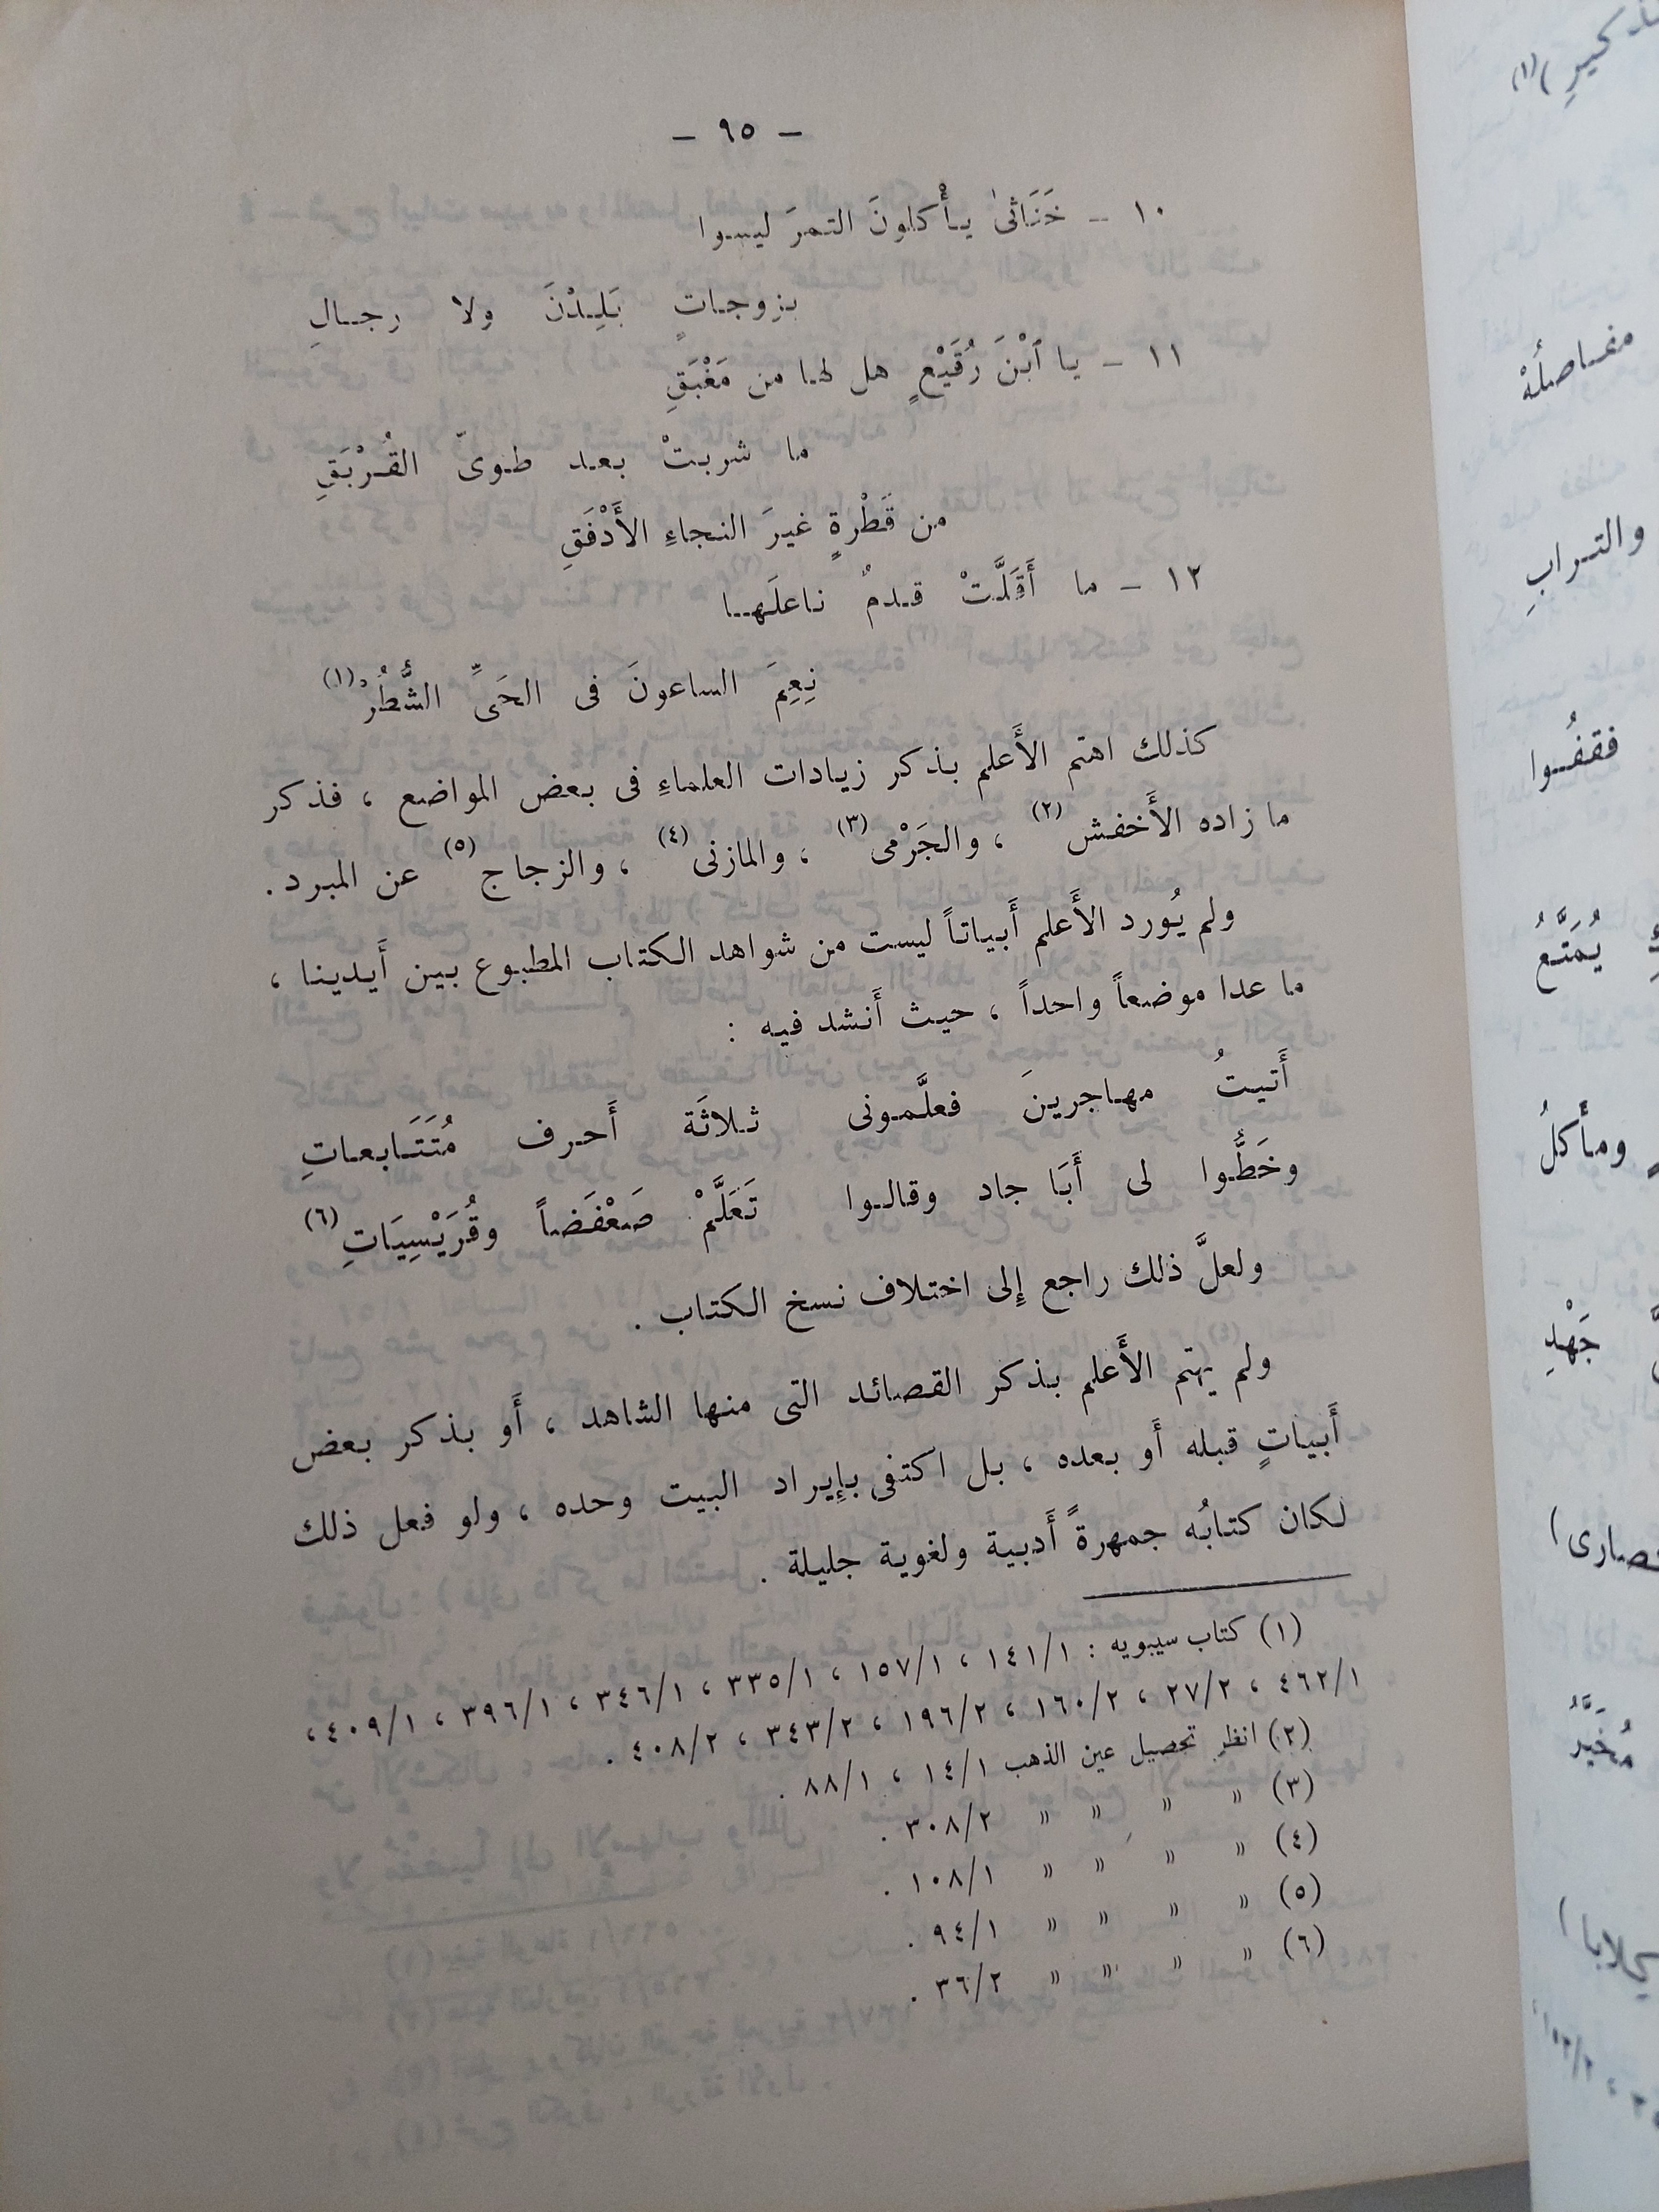 – ٩٥ –
١٠ – خَنَاثَىٰ يأْكلونَ التمرَ ليسوا
بزوجاتٍ يَلِدْنَ ولا رجالِ
١١ – يا ٱبْنَ رُقَيْعٍ هل لها من مَغْبَقِ
ما شربتْ بعد طوىّ القُرْبَقِ
من قَطْرةٍ غيرَ النجاءِ الأَدْفَقِ
١٢ – ما أَقَلَّتْ قدمٌ ناعلَها
نِعِمَ الساعونَ فى الحَىِّ الشُّطُرْ(١)
كذلك اهتم الأَعلم بذكر زيادات العلماءِ فى بعض المواضع ، فذكر
ما زاده الأَخفش(٢) ، والجَرْمى(٣) ، والمازنى(٤) ، والزجاج(٥) عن المبرد .
ولم يُورد الأَعلم أَبياتاً ليست من شواهد الكتاب المطبوع بين أَيدينا ،
ما عدا موضعاً واحداً ، حيث أَنشد فيه :
أَتيتُ مهاجرينَ فعلَّمونى ثلاثَة أَحرف مُتَتَابعاتِ
وخَطُّوا لى أَبَا جاد وقالوا تَعَلَّمْ صَعْفَضاً وقُرَيْسِيَاتِ(٦)
ولعلَّ ذلك راجع إِلى اختلاف نسخ الكتاب .
ولم يهتم الأَعلم بذكر القصائد التى منها الشاهد ، أَو بذكر بعض
أَبياتٍ قبله أَو بعده ، بل اكتفى بإِيراد البيت وحده ، ولو فعل ذلك
لكان كتابُه جمهرةً أَدبية ولغوية جليلة .
(١) كتاب سيبويه : ١٤١/١ ، ١٥٧/١ ، ٣٣٥/١ ، ٣٤٦/١ ، ٣٩٦/١ ، ٤٠٩/١ ،
٤٦٢/١ ، ٢٧/٢ ، ١٦٠/٢ ، ١٩٦/٢ ، ٣٤٣/٢ ، ٤٠٨/٢ .
(٢) انظر تحصيل عين الذهب ١٤/١ ، ٨٨/١ .
(٣) » » » » ٣٠٨/٢ .
(٤) » » » » ١٠٨/١ .
(٥) » » » » ٩٤/١ .
(٦) » » » » ٣٦/٢ .
مفاصلُهْ
والترابِ
فقفُوا
يُمَتَّعُ
ومأْكلُ
جَهْدِ